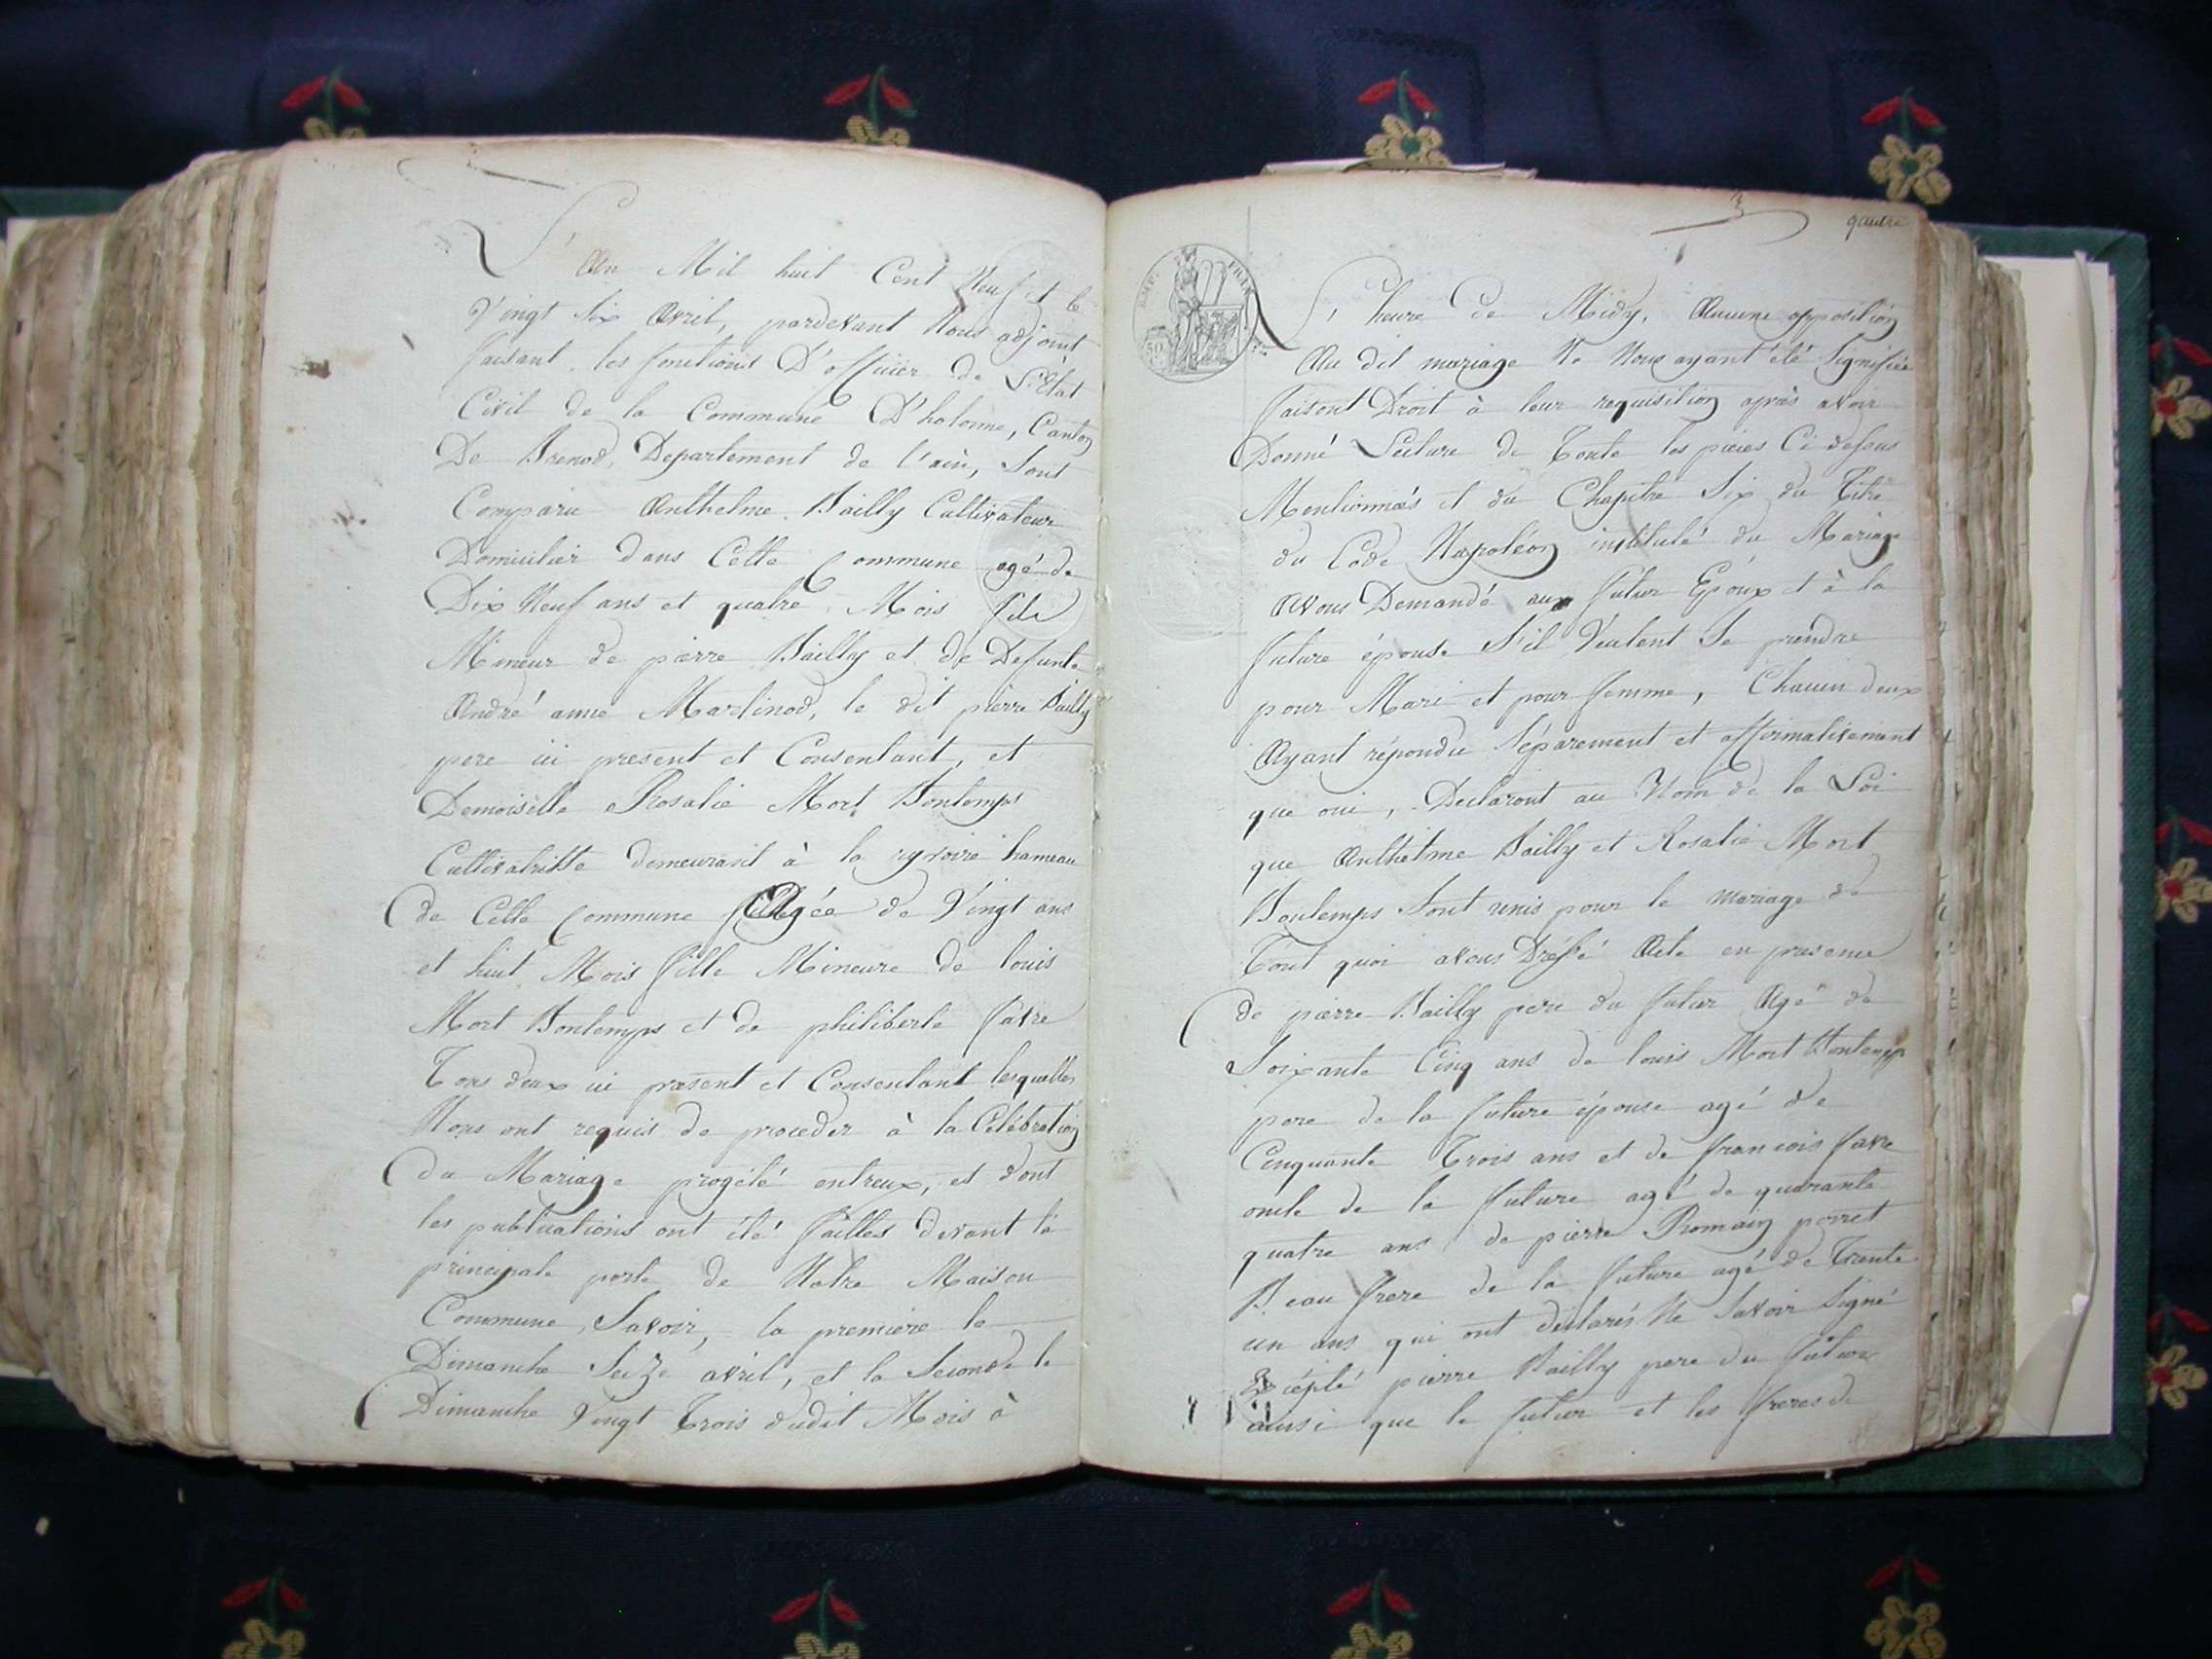 L'An Mil huit Cent Neuf et le
Vingt Six Avril, pardevant Nous adjoint
faisant les fonctions D'officier de L'Etat
Civil de la Commune D'hotonne, Canton
De Brenod, Departement de l'ain, Sont
Comparu Anthelme Bailly Cultivateur
Domicilier dans Cette Commune agé de
Dix Neuf ans et quatre Mois fils
Mineur de pierre Bailly et de Defunte
André anne Martinod, le dit pierre Bailly
pere ici present et Consentant, et
Demoiselle Rosalie Mort Bontemps
Cultivatrisse demeurant à la hameau
de Cette Commune Agée de Vingt ans
et huit Mois fille Mineure de louis
Mort Bontemps et de philiberte favre
Tous deux ici present et Consentant lesquelles
Nous ont requis de proceder à la Célébration
du Mariage progété entreux, et dont
les publications ont été faittes devant la
principale porte de Notre Maison
Commune, Savoir, la premiere le
Dimanche Seize avril, et la Seconde le
Dimanche Vingt Trois dudit Mois à
3
EMP. FRA
50
L'heure de Midy, Aucune opposition
Au dit mariage Ne Nous ayant été Signifiée
faisant Droit à leur requisition après avoir
Donné Lecture de Toute les pieces Ci dessus
Mentionnés et du Chapitre Six du Titre
du Code Napoléon institulé du Mariage
Avons Demandé aux futur Epoux et à la
future épouse S'il Veulent Se prendre
pour Mari et pour femme, Chacun deux
Ayant répondu Séparement et affirmativement
que oui, Declaront au Nom de la Loi
que Anthelme Bailly et Rosalie Mort
Bontemps Sont unis pour le mariage de
Tout quoi avons Dréssé Acte en presence
de pierre Bailly pere du futur Agé de
Soixante Cinq ans de louis Mort Bontemps
pere de la future épouse agé de
Cinquante Trois ans et de francois favre
oncle de la future agé de quarante
quatre ans de pierre Romain perret
Beau frere de la future agé de Trente
un ans qui ont déclarés Ne Savoir Signé
Excépté pierre Bailly pere du futur
ainsi que le futur et les freres de